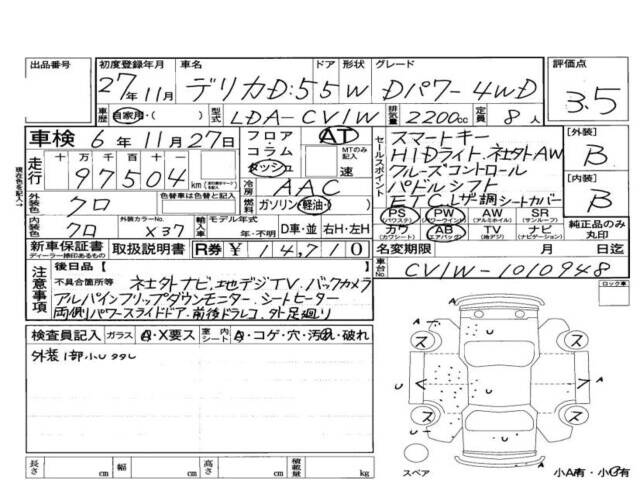 出品番号 初度登録年月 車名 ドア 形状 グレード 評価点
27年11月 デリカD:5 5 W Dパワー 4WD 3.5
車歴 自家用・( ) 型式 LDA-CV1W 排気量 2200cc 定員 8人
車検 6年11月27日 フロア コラム ダッシュ AT MTのみ記入 速
走行 十万 万 千 百 十 一
97504 km
冷房 AAC
セールスポイント
スマートキー
HIDライト.社外AW
クルーズコントロール
パドルシフト
ETC レザー調シートカバー
[外装] B
[内装] B
外装色 クロ 色替車は色替と記入 燃料 ガソリン 軽油 ( )
PS (パワステ) PW (パワーウインド) AW (アルミホイル) SR (サンルーフ)
内装色 クロ 外装カラーNo. X37 輸入車 モデル年式 年・不明 D車・並 右H・左H
カワ (カワシート) AB (エアバッグ) TV (地デジ) ナビ (ナビゲーション) 純正品のみ丸印
新車保証書 ディーラー捺印のあるもの 取扱説明書 R券 ¥14,710 名変期限 月 日迄
現在色を記入→
注意事項 後日品〔 〕
不具合箇所等 社外ナビ.地デジTV.バックカメラ
アルパインフリップダウンモニター.シートヒーター
両側パワースライドドア.前後ドラレコ.外足廻り
車台No. CV1W-1010948
ロック車
検査員記入 ガラス A・X要ス 室内シート A・コゲ・穴・汚れ・破れ
外装1部小U
ス ス
A A
U U
ス ス
A
スペア 小A有・小U有
長さ cm 幅 cm 高さ cm 積載量 kg